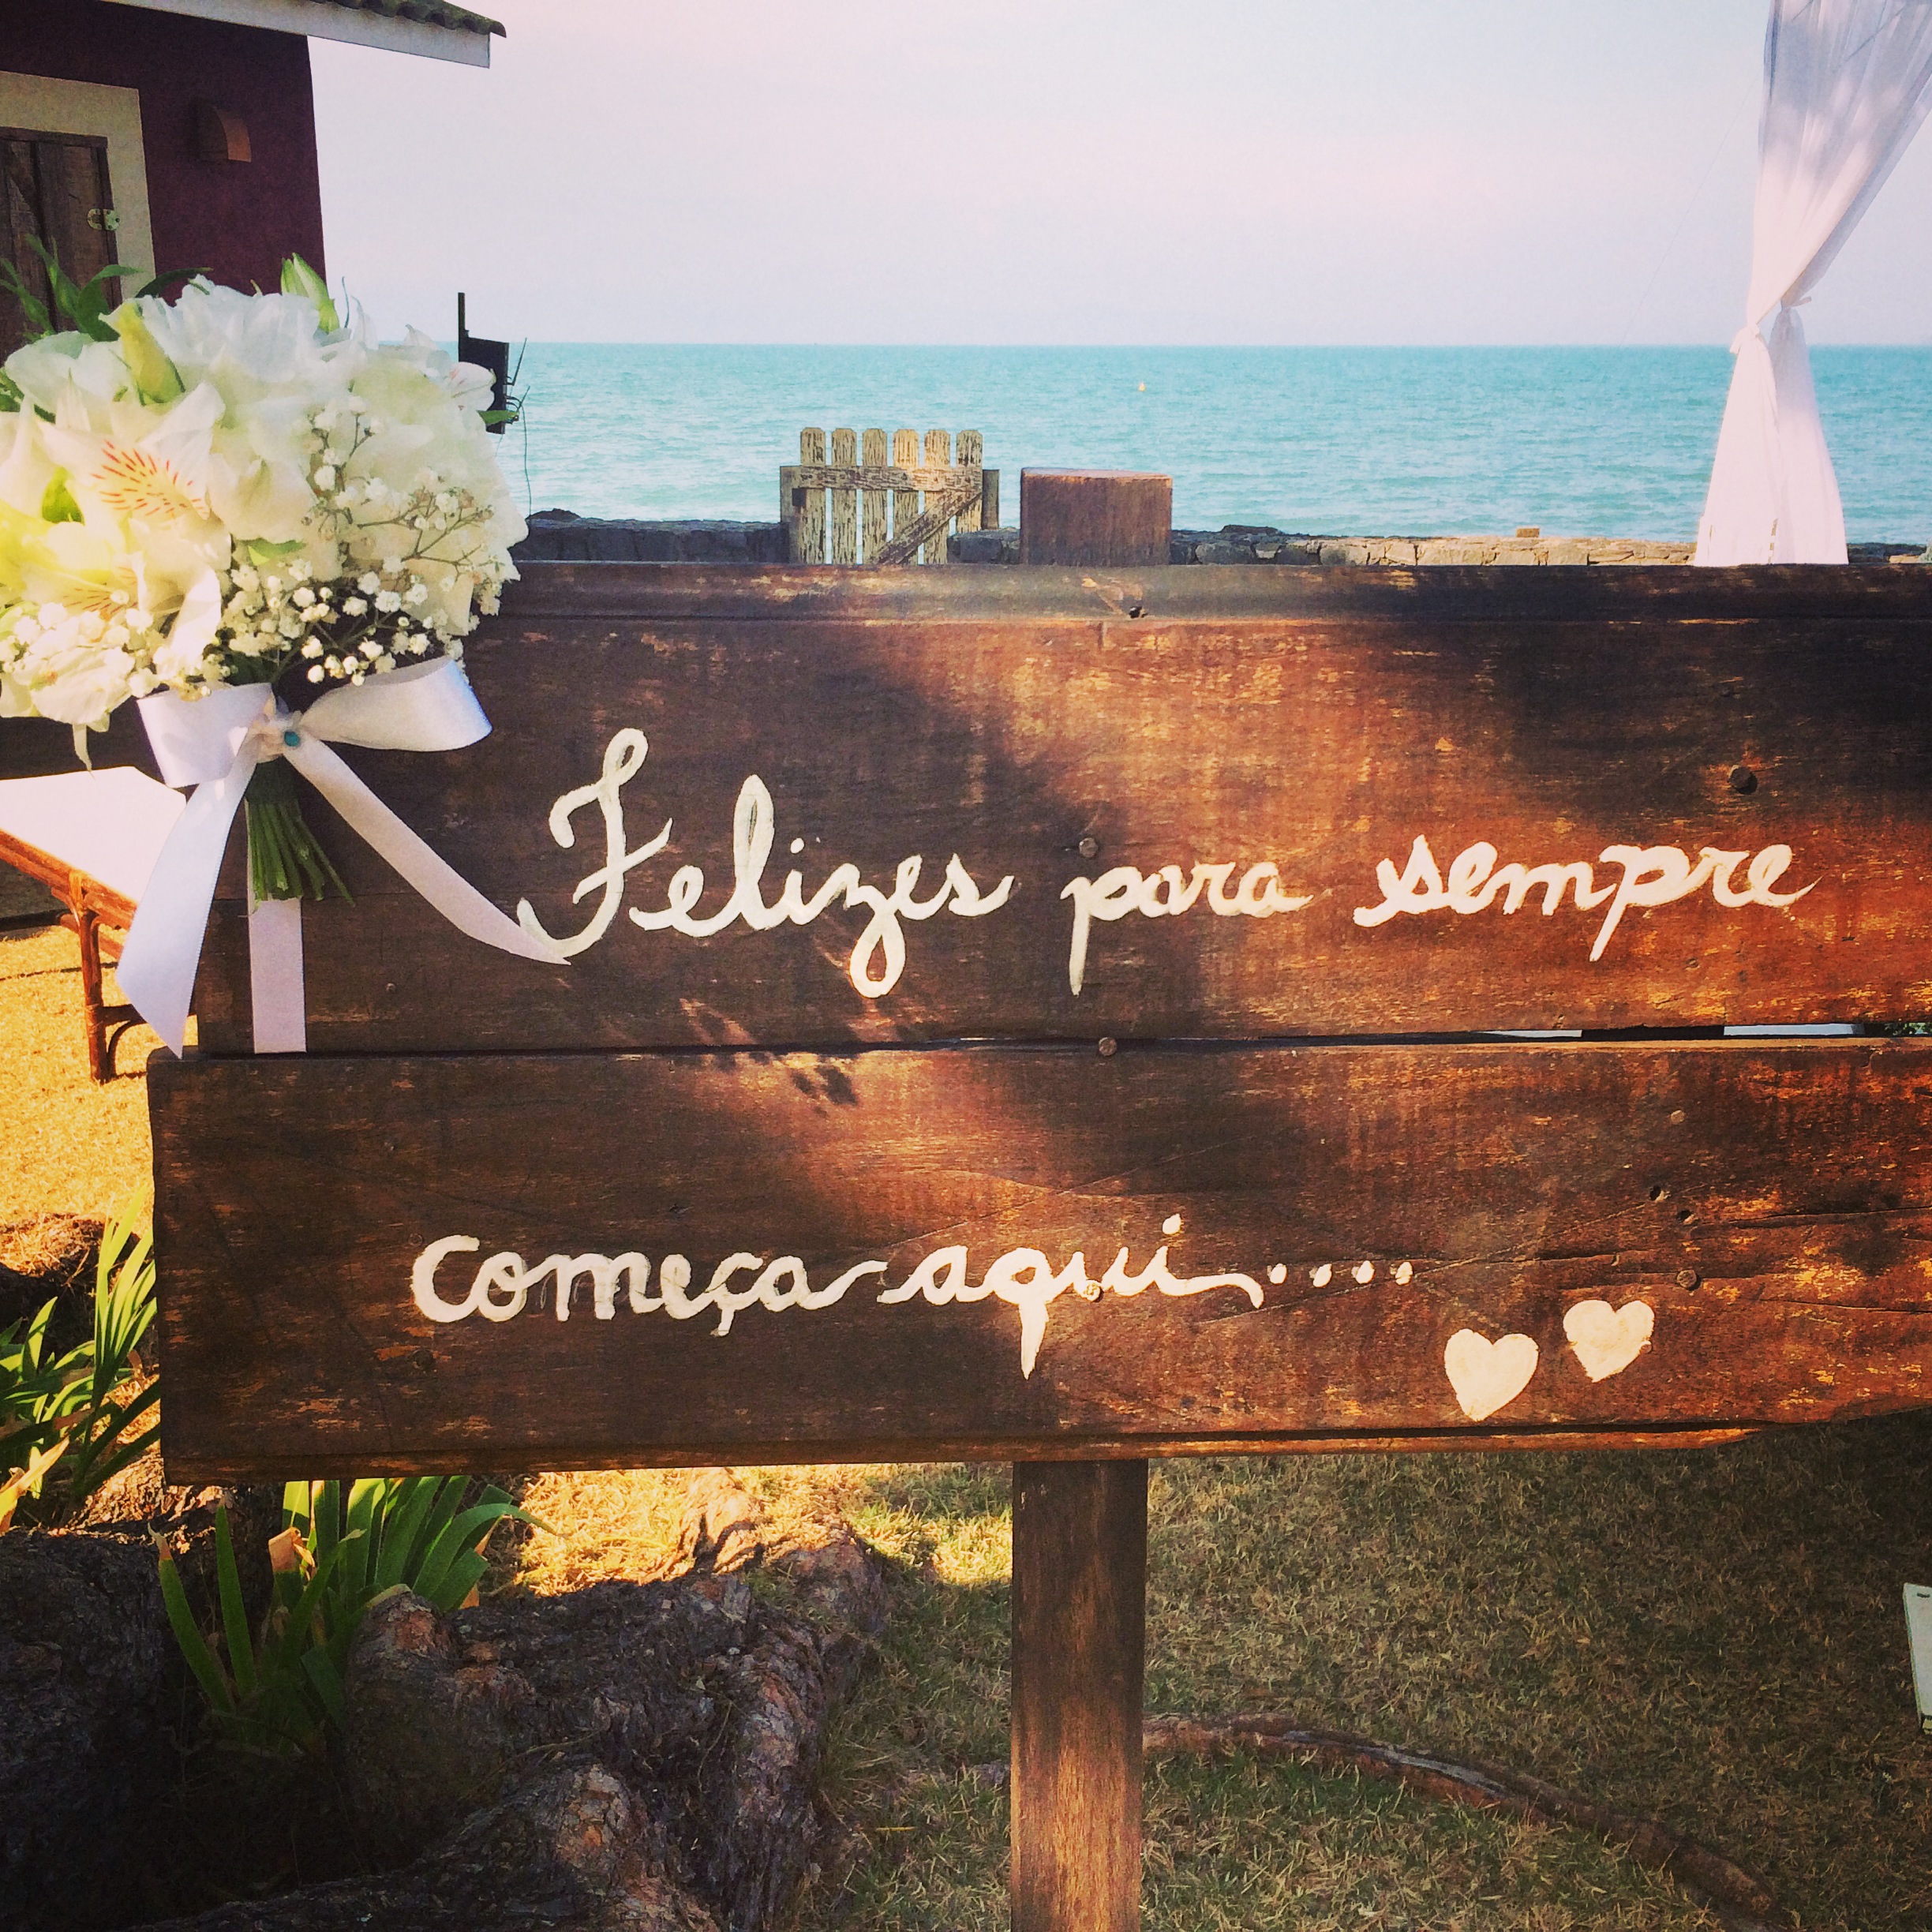 Felizes para sempre
começa aqui....